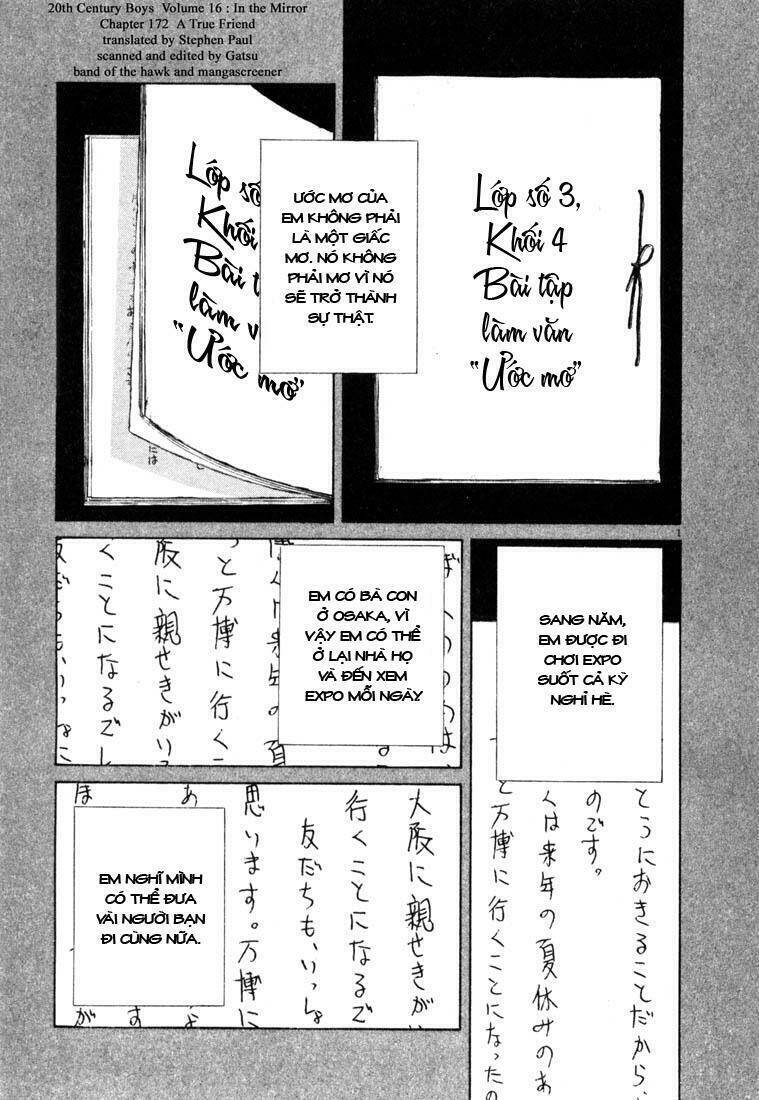 20th Century Boys Volume 16 : In the Mirror
Chapter 172 A True Friend
translated by Stephen Paul
scanned and edited by Gatsu
band of the hawk and mangascreener
Lớp số 3,
Khối 4
Bài tập
làm văn
"Ước mơ"
Lớp số
Khối
Bài tập
làm văn
"Ước mơ"
ƯỚC MƠ CỦA
EM KHÔNG PHẢI
LÀ MỘT GIẤC
MƠ. NÓ KHÔNG
PHẢI MƠ VÌ NÓ
SẼ TRỞ THÀNH
SỰ THẬT.
1
SANG NĂM,
EM ĐƯỢC ĐI
CHƠI EXPO
SUỐT CẢ KỲ
NGHỈ HÈ.
とうにおきることだから
のです。
くは来年の夏休みのあ
と万博に行くことになったの
EM CÓ BÀ CON
Ở OSAKA, VÌ
VẬY EM CÓ THỂ
Ở LẠI NHÀ HỌ
VÀ ĐẾN XEM
EXPO MỖI NGÀY.
くは来年の夏
っと万博に行く
阪に親せきがい
くことになるで
友だちも、いっしょに
EM NGHĨ MÌNH
CÓ THỂ ĐƯA
VÀI NGƯỜI BẠN
ĐI CÙNG NỮA.
大阪に親せきがい
行くことになるで
友だちも、いっしょ
思います。万博に